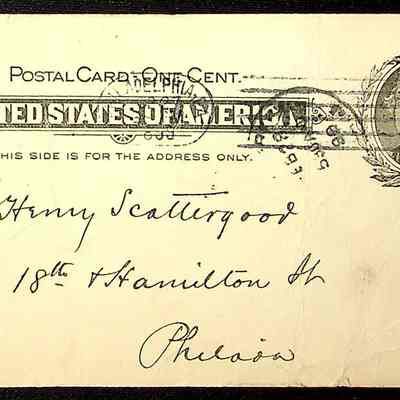 POSTAL CARD. ONE CENT.
ADELPHIA
TED STATES OF AMERICA
HIS SIDE IS FOR THE ADDRESS ONLY.
Henry Scattergood
18th & Hamilton St
Philada